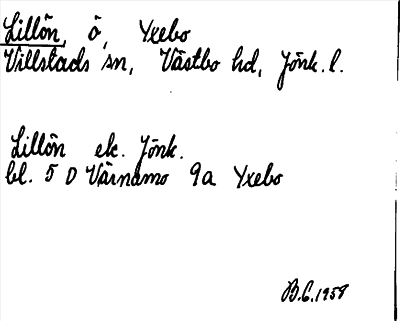 Lillön, ö, Yxebo
Villstads sn, Västbo hd, Jönk. l.
Lillön ek. Jönk.
bl. 5 D Värnamo 9a Yxebo
B.C. 1958